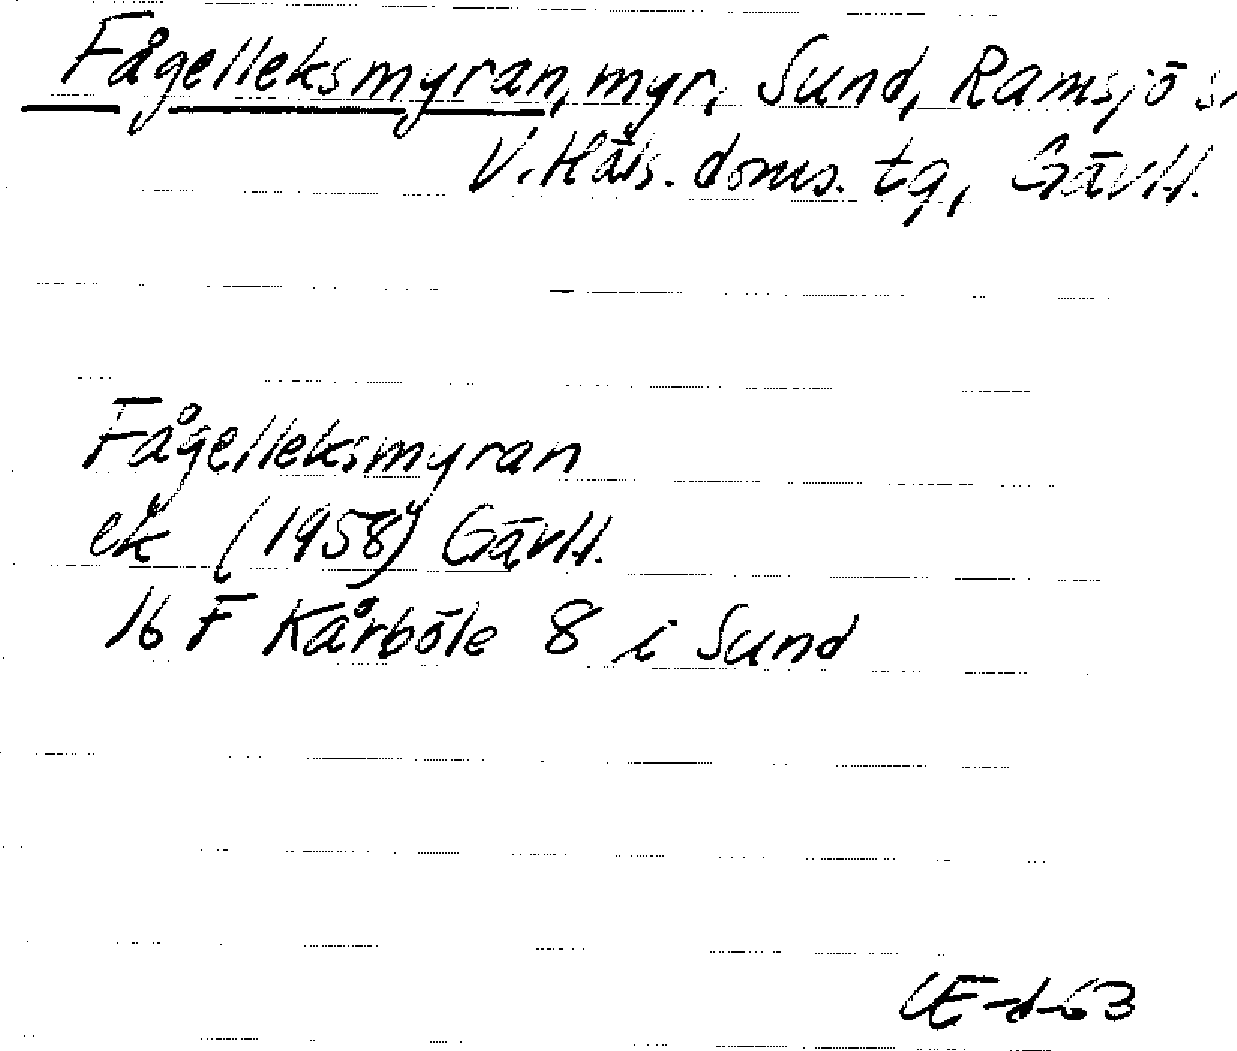 Fågelleksmyran, myr, Sund, Ramsjö s.
V. Häls. doms. tg, Gävll.
Fågelleksmyran
ek (1958) Gävll.
16 F Kårböle 8 i Sund